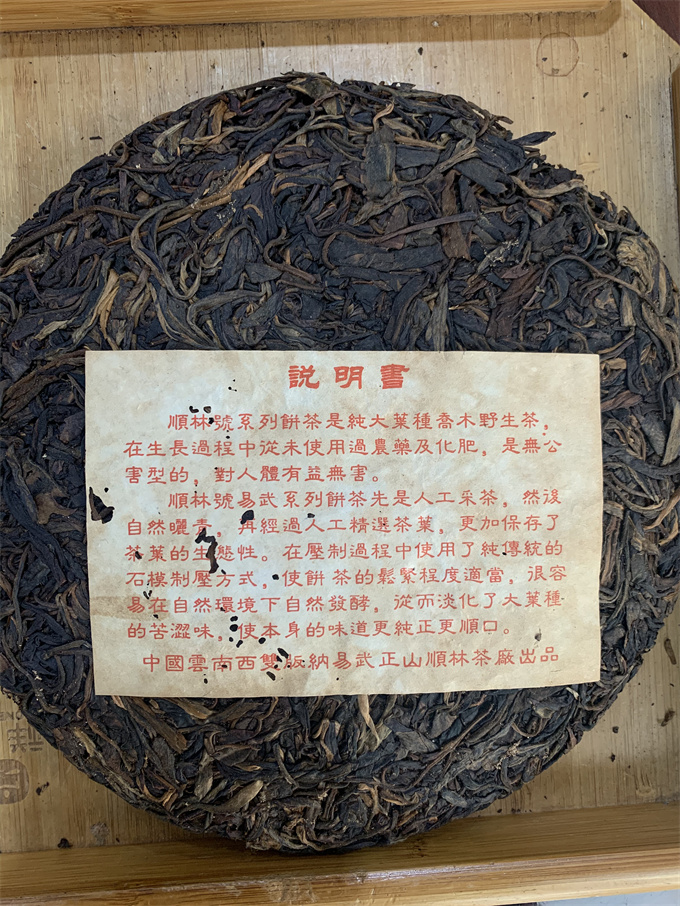 說明書
順林號系列餅茶是純大葉種喬木野生茶，
在生長過程中從未使用過農藥及化肥，是無公
害型的，對人體有益無害。
順林號易武系列餅茶先是人工采茶，然後
自然曬青，再經過人工精選茶葉，更加保存了
茶葉的生態性。在壓制過程中使用了純傳統的
石模制壓方式，使餅茶的鬆緊程度適當，很容
易在自然環境下自然發酵，從而淡化了大葉種
的苦澀味，使本身的味道更純正更順口。
中國雲南西雙版納易武正山順林茶廠出品